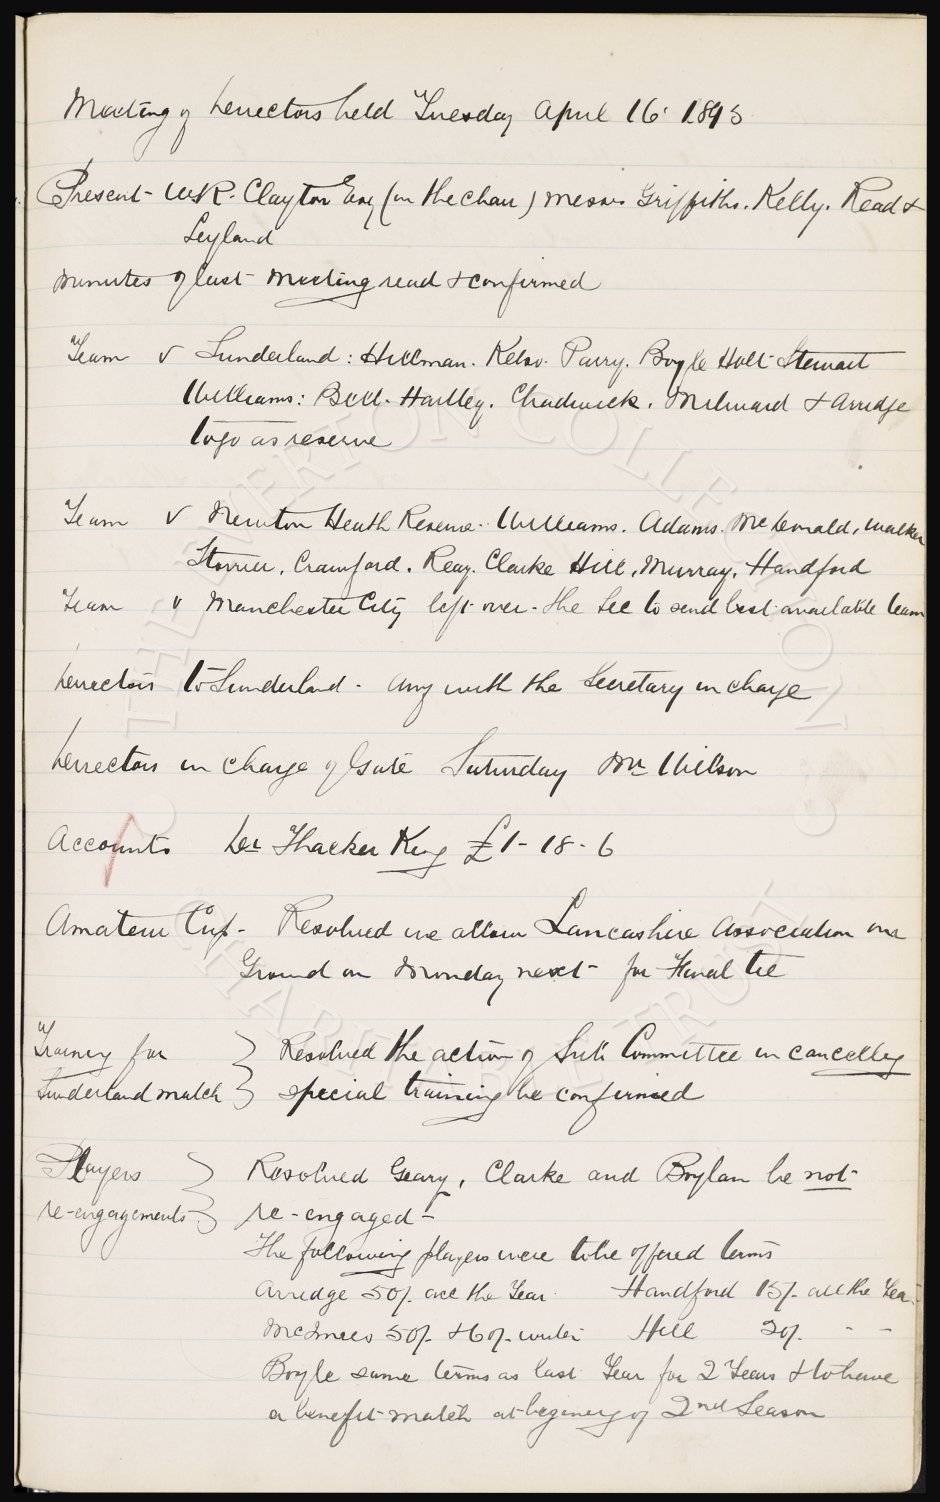 Meeting of Directors held Tuesday April 16. 1895
Present - W.R. Clayton Esq (in the chair) Messrs Griffiths. Kelly. Read &
Leyland
Minutes of last meeting read & confirmed
Team v Sunderland: Hillman. Kelso. Parry. Boyle Holt Stewart
Williams: Bell. Hartley. Chadwick. Milward & Arridge
to go as reserve
Team v Newton Heath Reserve - Williams. Adams. McDonald. Walker
Storrier. Crawford. Reay. Clarke Hill, Murray, Handford
Team v Manchester City left over - the Sec to send best available team
Directors to Sunderland - Any with the Secretary in charge
Directors in charge of Gate Saturday Mr Wilson
Accounts Dr Thacker King £1-18-6
Amateur Cup - Resolved we allow Lancashire Association our
Ground on Monday next - for Final tie
Training for } Resolved the action of Sub Committee in cancelleg
Sunderland match } special training be confirmed
Players } Resolved Geary, Clarke and Boylan be not
re-engagements } re-engaged -
The following players were to be offered terms
Arridge 50/- all the Year Handford 15/- all the Year
McInnes 50/- & 60/- winter Hill 20/- - -
Boyle same terms as last Year for 2 Years & to have
a benefit match at begineng of 2nd Season
THE EVERTON COLLECTION
CHARITABLE TRUST